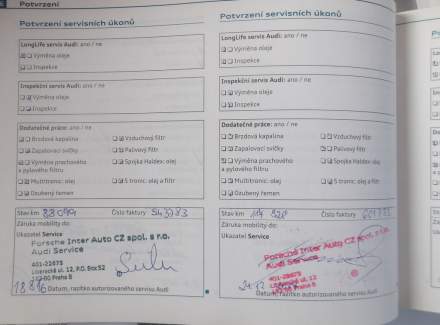 Potvrzení
Potvrzení servisních úkonů
LongLife servis Audi: ano / ne
Výměna oleje
Inspekce
Inspekční servis Audi: ano / ne
Výměna oleje
Inspekce
Dodatečné práce: ano / ne
Brzdová kapalina
Vzduchový filtr
Zapalovací svíčky
Palivový filtr
Výměna prachového
a pylového filtru
Spojka Haldex: olej
Multitronic: olej
S tronic: olej a filtr
Ozubený řemen
Stav km 83 099
Číslo faktury
Záruka mobility do:
Ukazatel Service
Porsche Inter Auto CZ spol. s r.o.
Audi Service
401-22675
Liberecká ul. 12, P.O. Box 52
182 00 Praha 8
Datum, razítko autorizovaného servisu Audi
Potvrzení servisních úkonů
LongLife servis Audi: ano / ne
Výměna oleje
Inspekce
Inspekční servis Audi: ano / ne
Výměna oleje
Inspekce
Dodatečné práce: ano / ne
Brzdová kapalina
Vzduchový filtr
Zapalovací svíčky
Palivový filtr
Výměna prachového
a pylového filtru
Spojka Haldex: olej
Multitronic: olej
S tronic: olej a filtr
Ozubený řemen
Stav km 114 528
Číslo faktury
Záruka mobility do:
Ukazatel Service
Porsche Inter Auto CZ spol. s r.o.
Audi Service
401-22675
Liberecká ul. 12
182 00 Praha 8
Datum, razítko autorizovaného servisu Audi